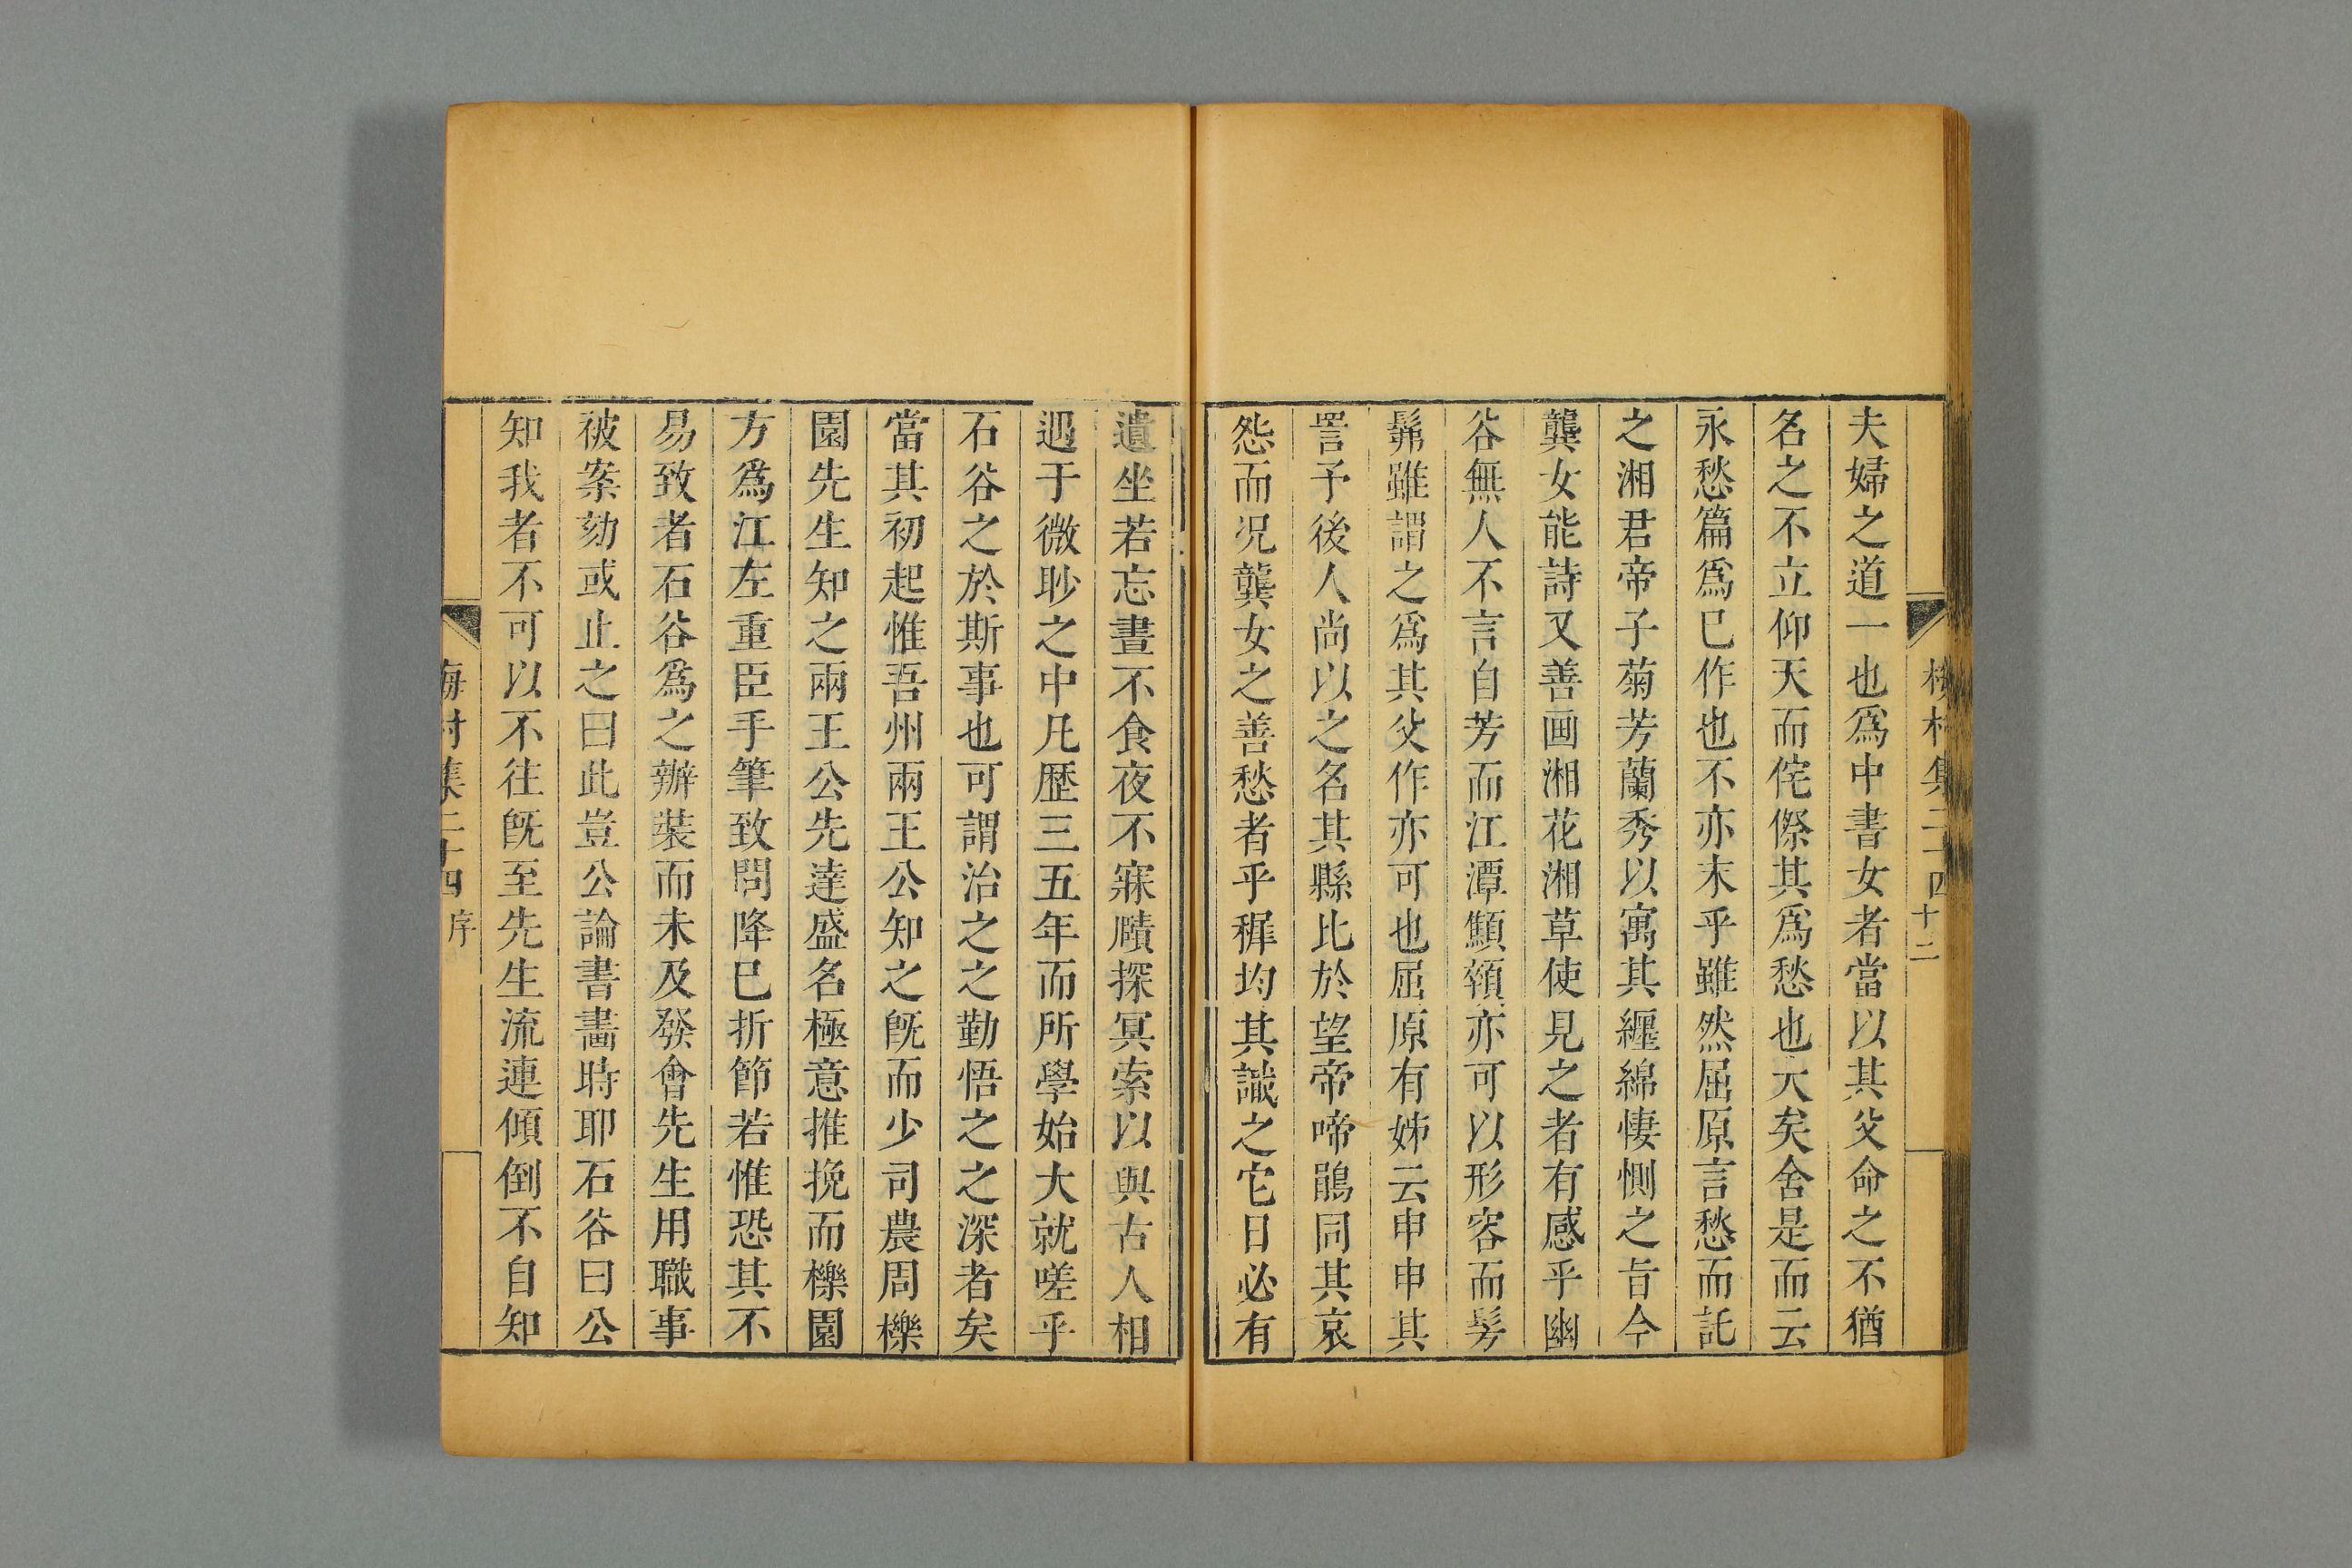 梅村集二十四
十二
夫婦之道一也爲中書女者當以其父命之不猶
名之不立仰天而侘傺其爲愁也大矣舍是而云
永愁篇爲已作也不亦末乎雖然屈原言愁而託
之湘君帝子菊芳蘭秀以寓其纏綿悽惻之旨今
龔女能詩又善画湘花湘草使見之者有感乎幽
谷無人不言自芳而江潭顦顇亦可以形容而髣
髴雖謂之爲其父作亦可也屈原有姊云申申其
詈予後人尚以之名其縣比於望帝啼鵑同其哀
怨而况龔女之善愁者乎穉均其識之它日必有
遺坐若忘晝不食夜不寐賾探冥索以與古人相
遇于微眇之中凡歷三五年而所學始大就嗟乎
石谷之於斯事也可謂治之之勤悟之之深者矣
當其初起惟吾州兩王公知之旣而少司農周櫟
園先生知之兩王公先達盛名極意推挽而櫟園
方爲江左重臣手筆致問降已折節若惟恐其不
易致者石谷爲之辦裝而未及發會先生用職事
被案劾或止之曰此豈公論書畵時耶石谷曰公
知我者不可以不往旣至先生流連傾倒不自知
梅村集二十四
序